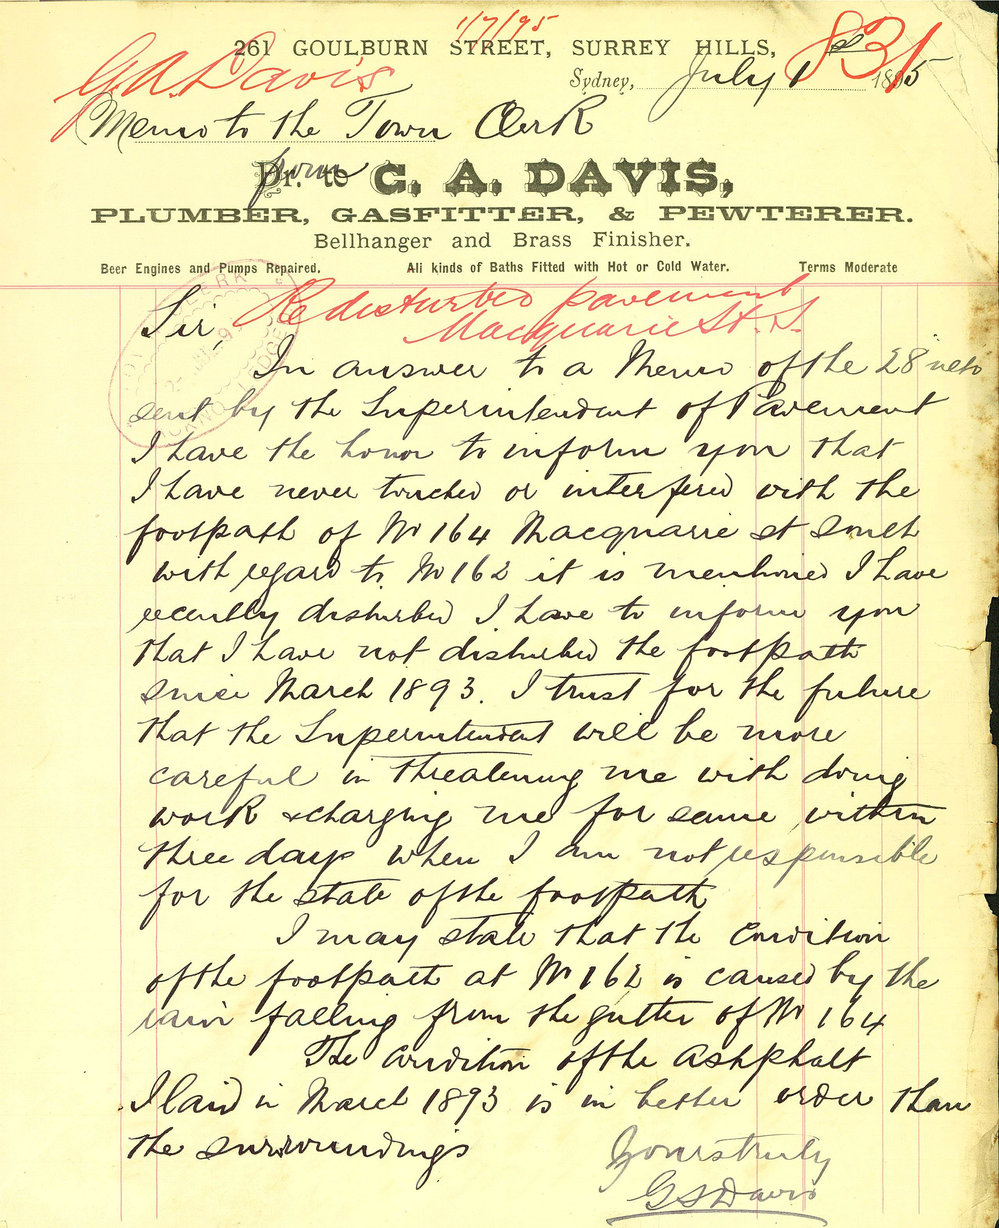 1/7/95
261 GOULBURN STREET, SURREY HILLS,
831
G.A. Davis
Sydney, July 1st 1895
Memo to the Town Clerk
from
Dr. to C. A. DAVIS,
PLUMBER, GASFITTER, & PEWTERER.
Bellhanger and Brass Finisher.
Beer Engines and Pumps Repaired. All kinds of Baths Fitted with Hot or Cold Water. Terms Moderate
Re disturbed pavement
Macquarie St. S.
Sir,
In answer to a Memo of the 28
sent by the Superintendent of Pavement
I have the honor to inform you that
I have never touched or interfered with the
footpath of No 164 Macquarie st South
with regard to No 162 it is mentioned I have
recently disturbed I have to inform you
that I have not disturbed the footpath
since March 1893. I trust for the future
that the Superintendent will be more
careful in threatening me with doing
work & charging me for same within
three days when I am not responsible
for the state of the footpath
I may state that the condition
of the footpath at No 162 is caused by the
rain falling from the gutter of No 164
The condition of the Ashphalt
I laid in March 1893 is in better order than
the surroundings
Yours truly
G S Davis